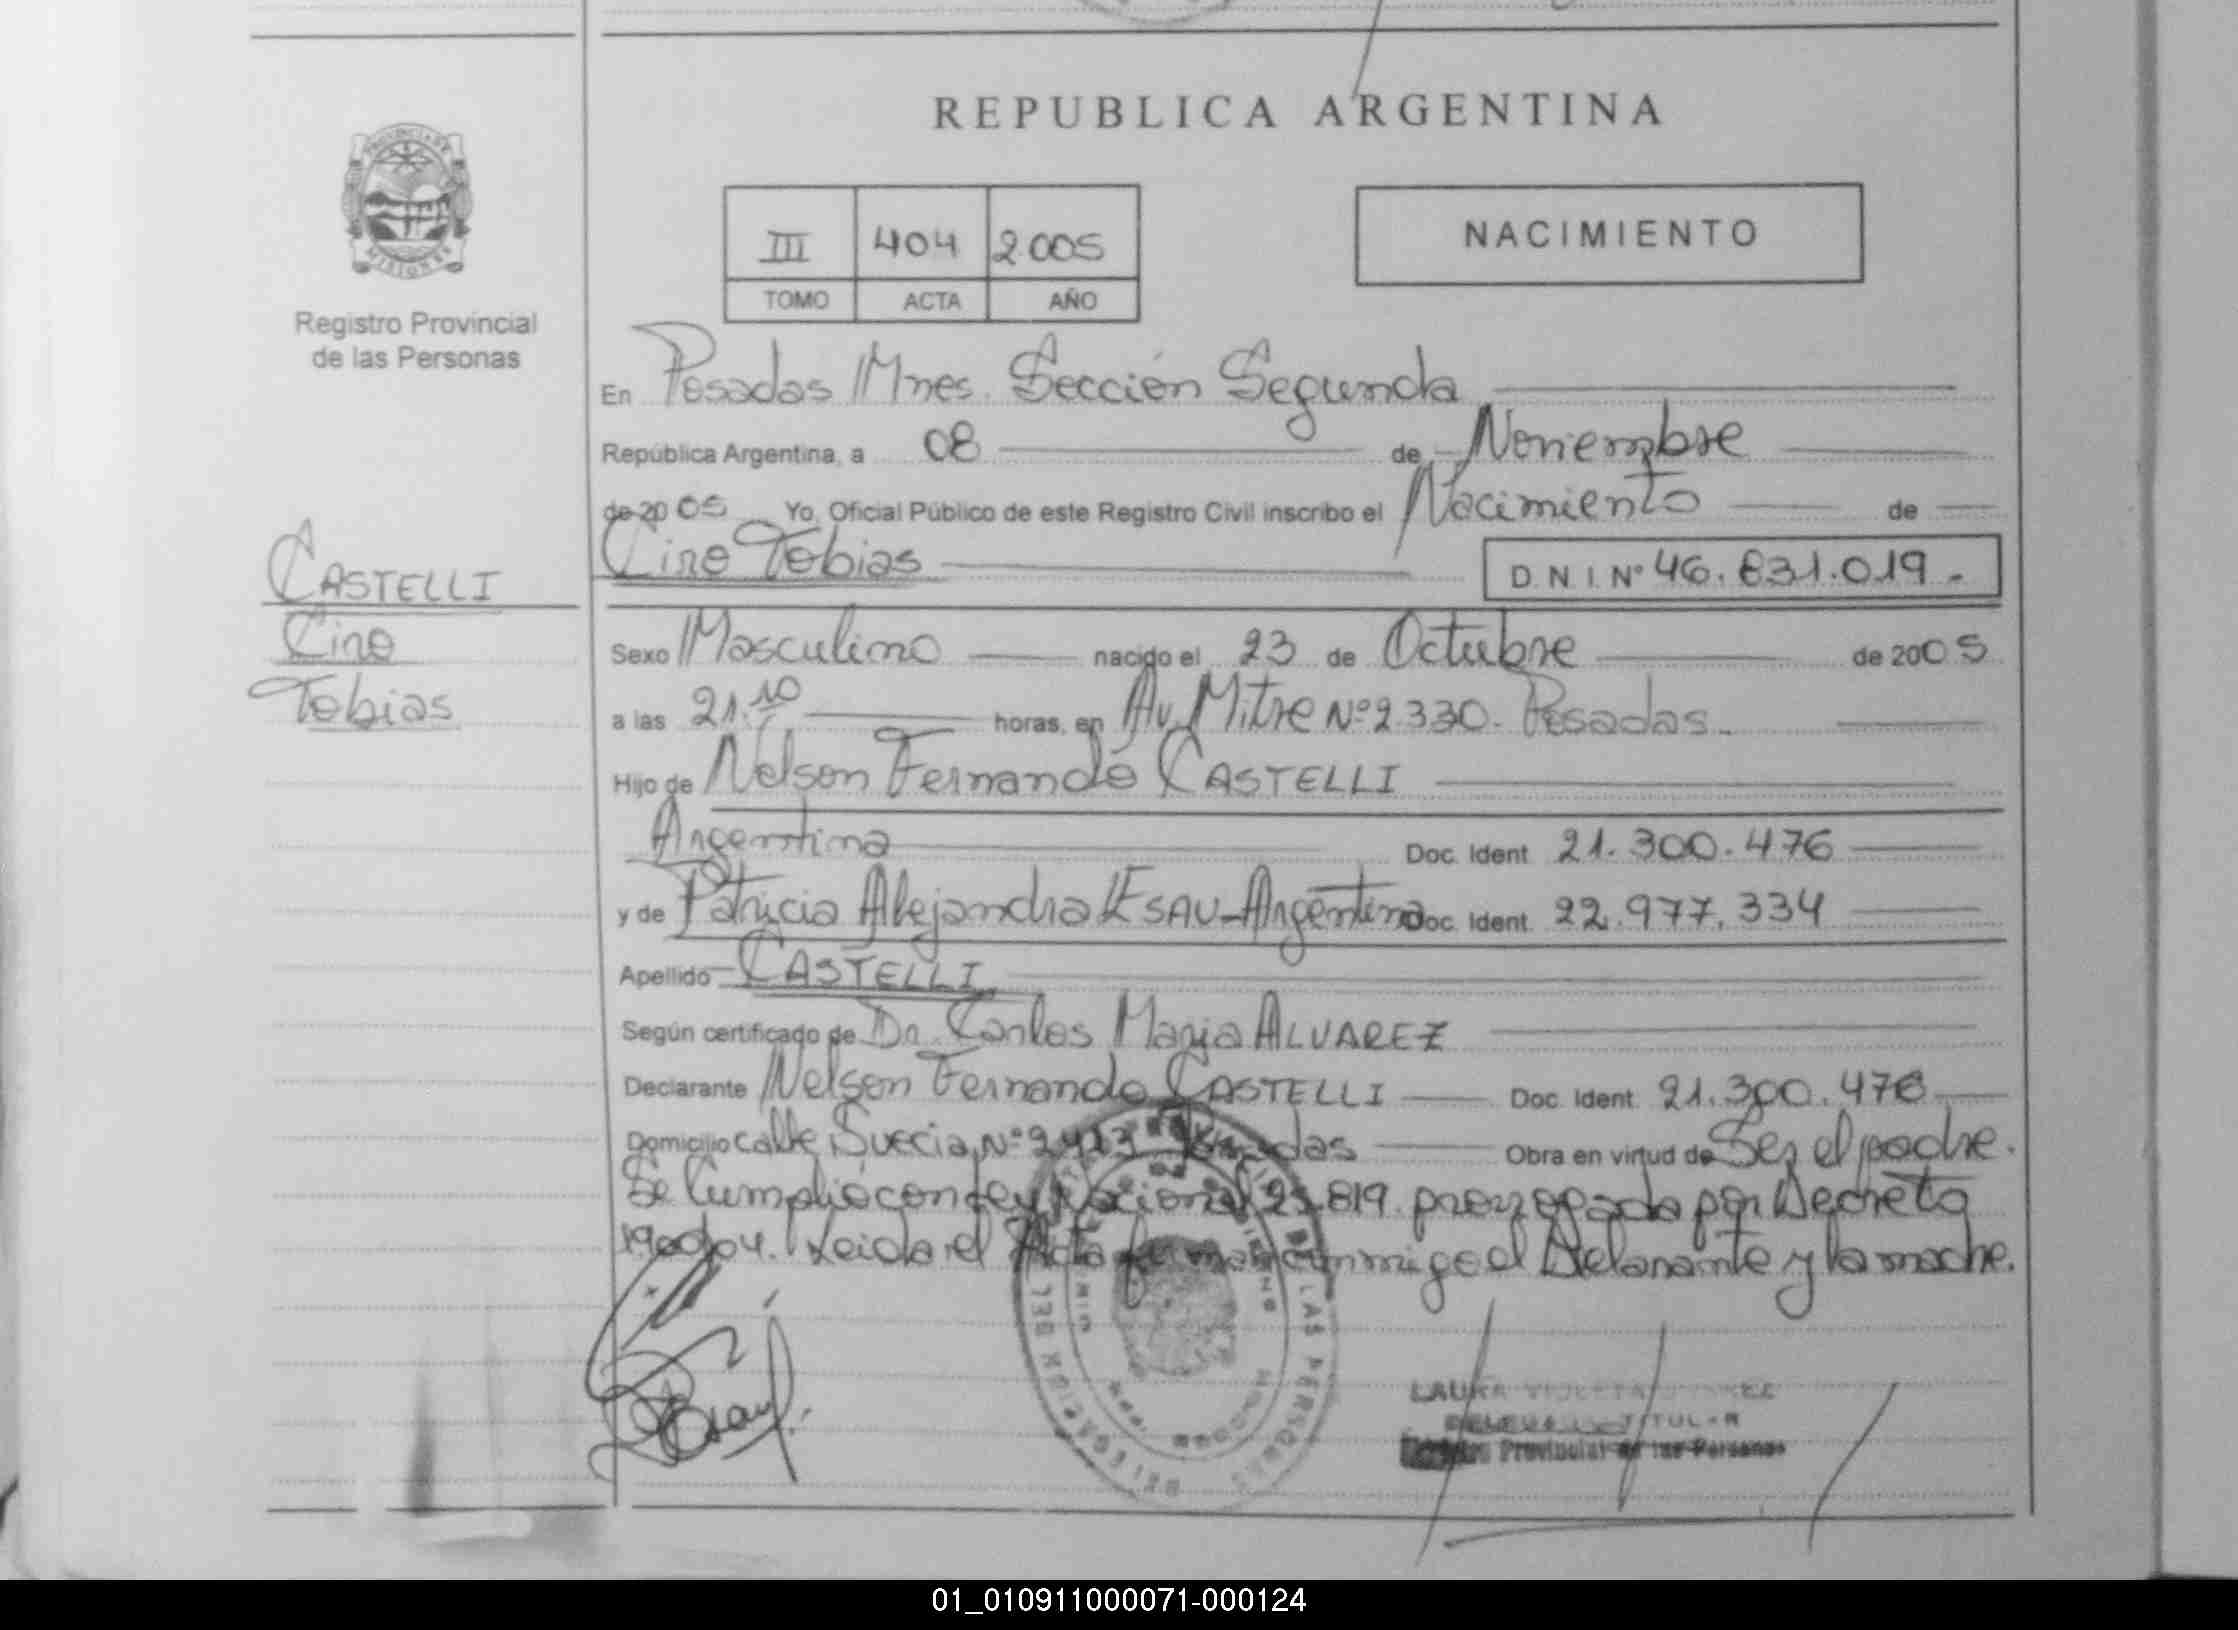 REPUBLICA ARGENTINA
PROVINCIA DE
MISIONES
Registro Provincial
de las Personas
III 404 2.005
TOMO ACTA AÑO
NACIMIENTO
En Posadas Mnes. Sección Segunda
República Argentina, a 08 de Noviembre
de 2005 Yo, Oficial Público de este Registro Civil inscribo el Nacimiento de
Ciro Tobias D.N.I. Nº 46.831.019.-
CASTELLI
Ciro
Tobias
Sexo Masculino nacido el 23 de Octubre de 2005
a las 21.10 horas, en Av. Mitre Nº 2.330. Posadas.
Hijo de Nelson Fernando CASTELLI
Argentina Doc. Ident. 21.300.476
y de Patricia Alejandra ESAU-Argentina Doc. Ident. 22.977.334
Apellido CASTELLI
Según certificado de Dr. Carlos Maria ALVAREZ
Declarante Nelson Fernando CASTELLI Doc. Ident. 21.300.476
Domicilio Calle Suecia Nº Posadas Obra en virtud de Ser el padre.
Se Cumplió con Ley Nacional 25.819. prorrogada por Decreto
Leida el Acta firman conmigo el Delarante y la madre.
DELEGACION
LAS PERSONAS
LAURA
TITULAR
Provincial de las Personas
01_010911000071-000124